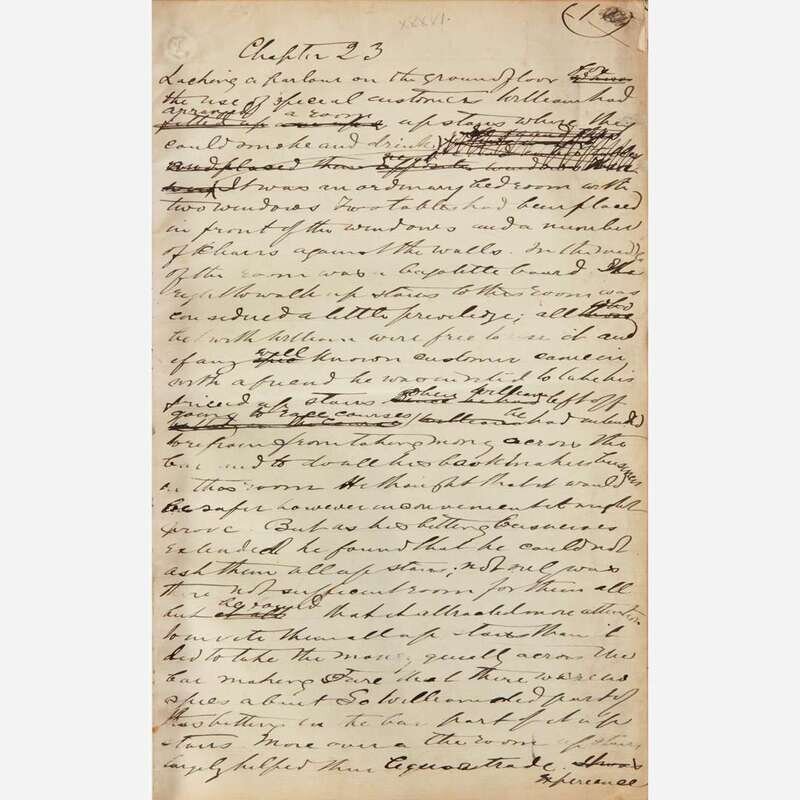 XXXVI.
1
Chapter 23
Lacking a parlour on the ground floor for
the use of special customers William had
arranged a room
fitted up up stairs where they
could smoke and drink
and placed there
It was an ordinary bed room with
two windows Two tables had been placed
in front of the windows and a number
of Chairs against the walls. In the middle
of the room was a bagatelle board The
right to walk up stairs to this room was
considered a little priviledge; all who
bet with William were free to use it and
if any well known customer came in
with a friend he was invited to take his
up stairs when William left off
going to race courses he had intended
to refrain from taking money across the
bar and to do all his bookmakers business
in this room He thought that it would
be safer however inconvenient it might
prove. But as his betting businesses
extended he found that he could not
ask them all up stairs; not only was
there not sufficient room for them all
but he found that it attracted more attention
to invite them all up stairs than it
did to take the money quietly across the
bar making sure that there were no
spies about So William did part of
this betting in the bar part of it up
stairs. More over the room up stairs
largely helped the liquor trade. It was
Experience